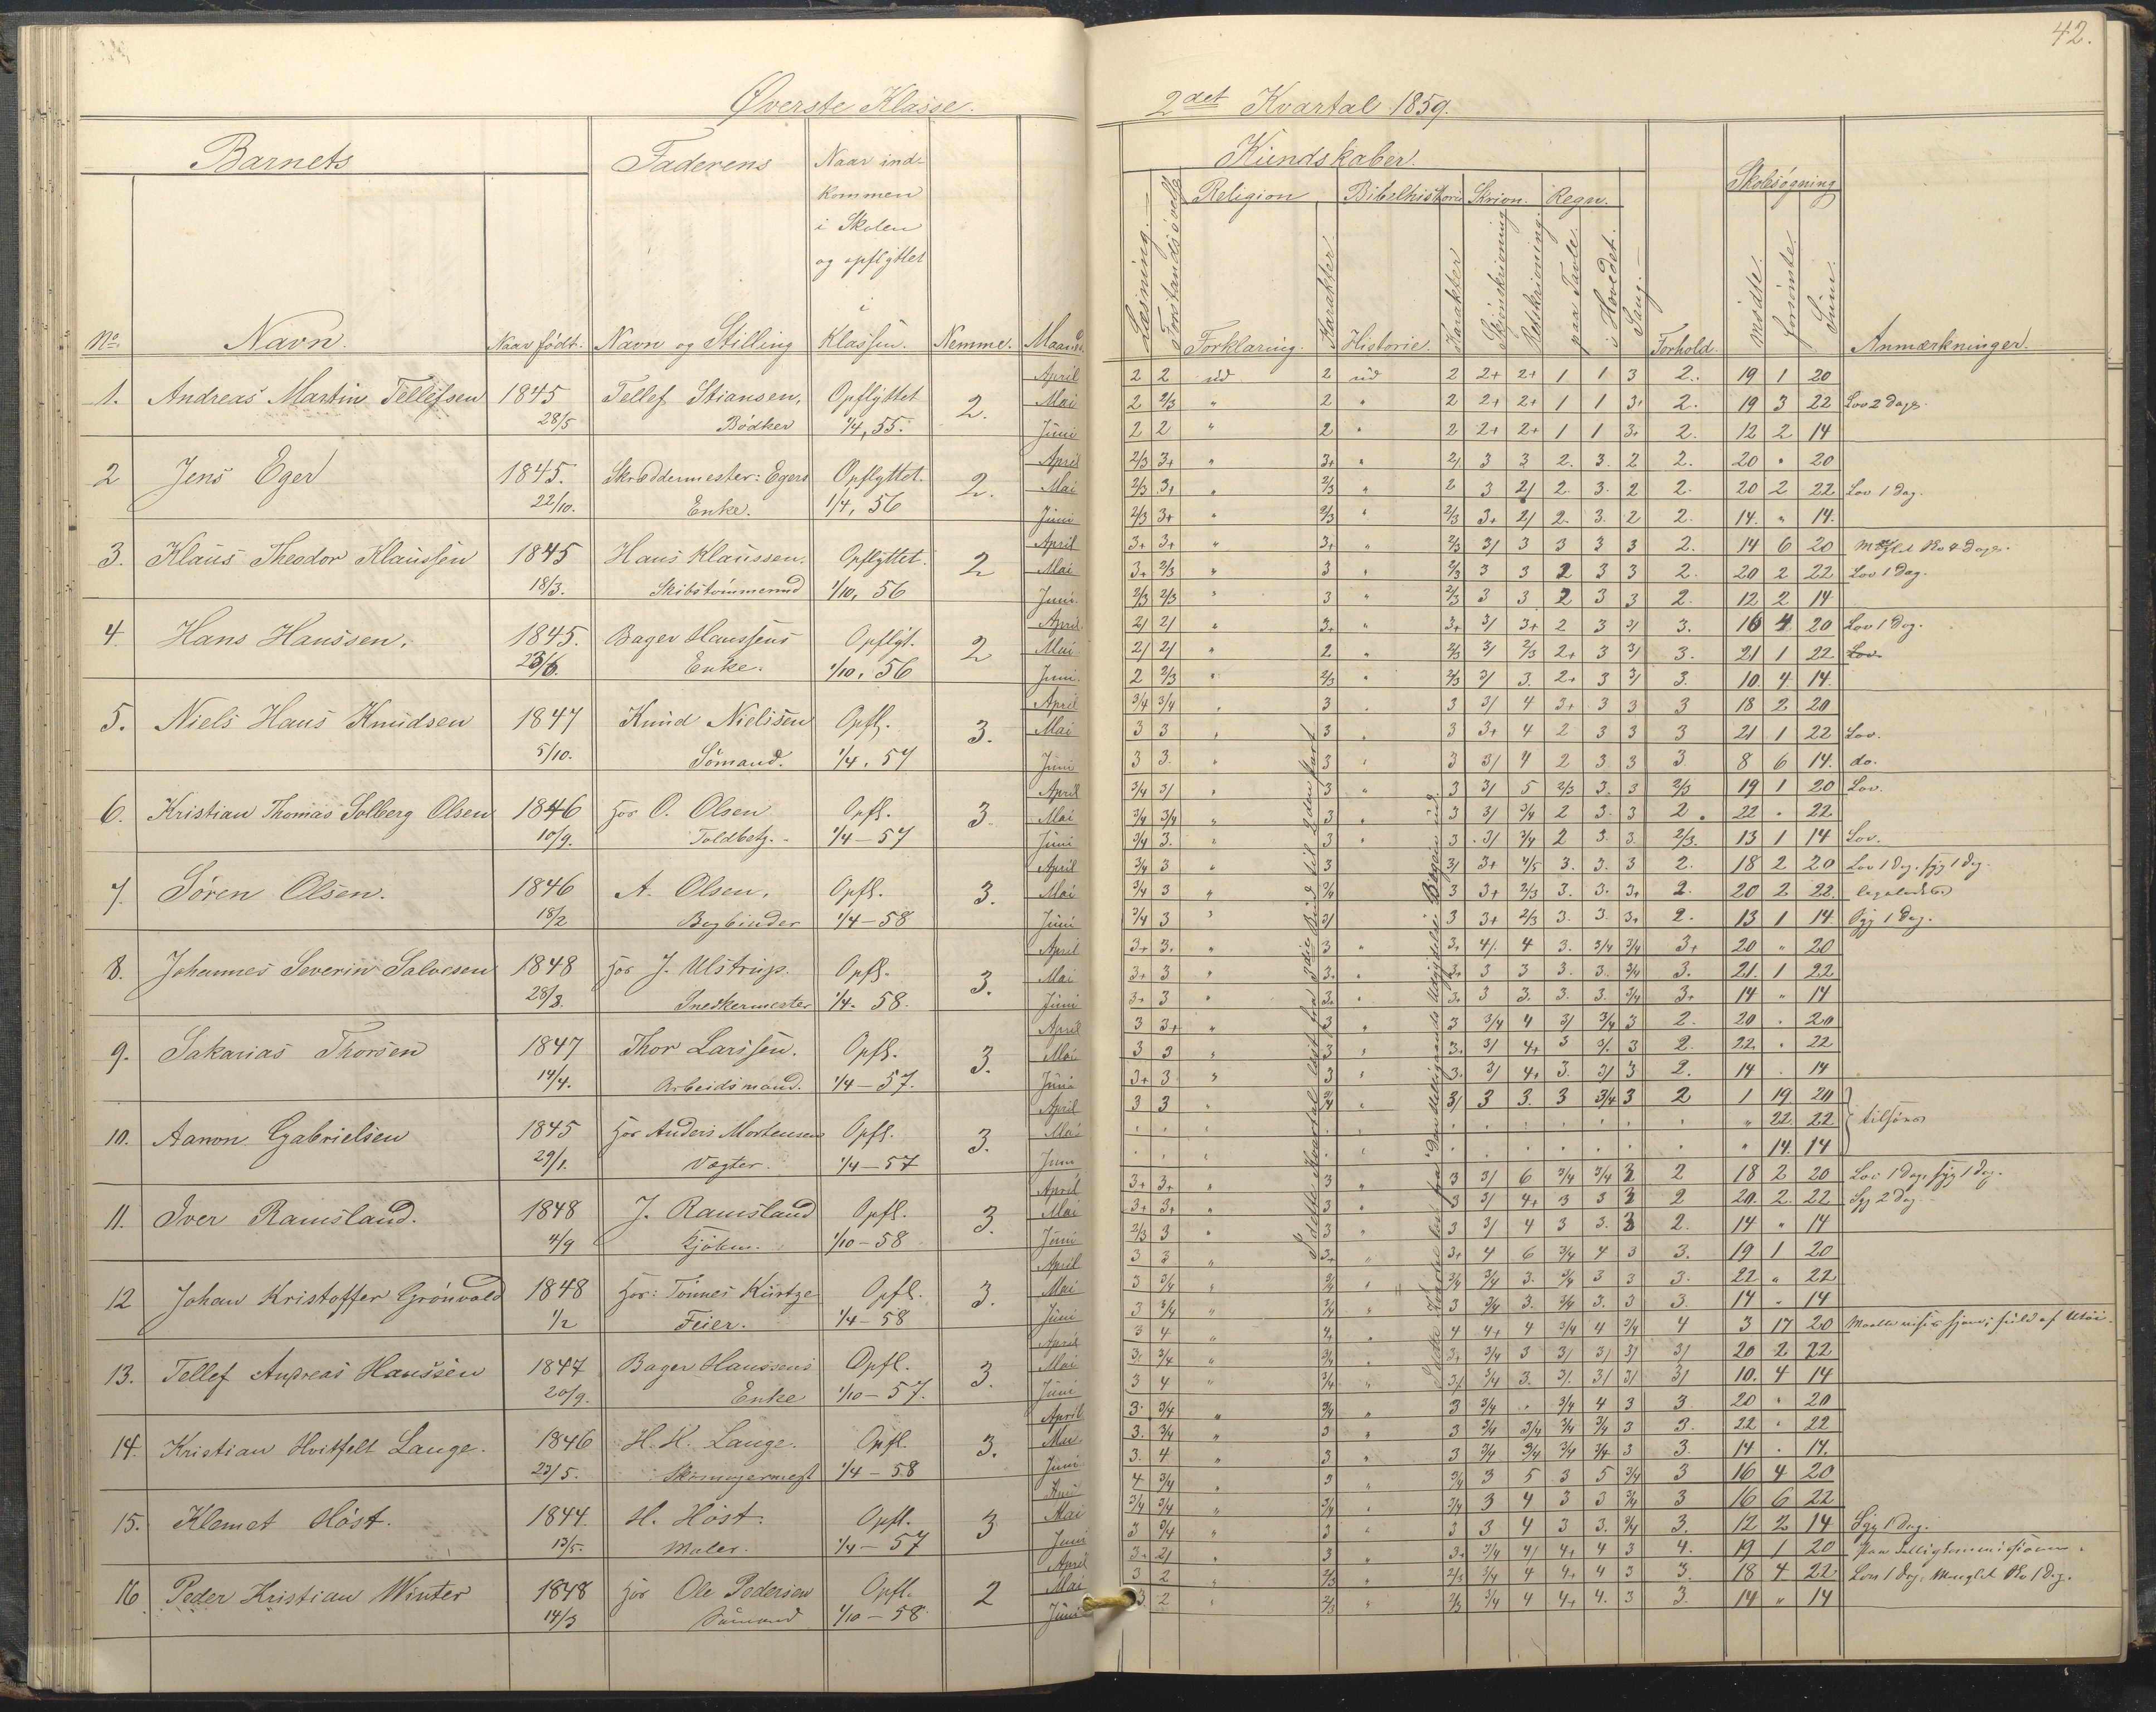 42.
Øverste Klasse.
2det Kvartal 1859.
Barnets
Faderens
Naar ind-
kommen
i Skolen
og opflyttet
i
Klassen.
No.
Navn.
Naar født.
Navn og Stilling
Nemme.
Maaned.
Kundskaber.
Læsning.
Forstandsøvelse
Religion
Forklaring.
Karakter.
Bibelhistorie
Historie.
Karakter
Skrivn.
Skjönskrivning
Retskrivning.
Regn.
paa Tavle.
i Hovedet.
Sang.
Forhold.
Skolesøgning
mödte.
forsömte.
Sum.
Anmærkninger.
1. Andreas Martin Tellefsen 1845 Tellef Stiansen, Opflyttet 2.
28/5 Bödker 1/4, 55.
April 2 2 ud 2 ud 2 2+ 2+ 1 1 3 2. 19 1 20
Mai 2 2/3 " 2 " 2 2+ 2+ 1 1 3+ 2. 19 3 22 Lov 2 Dage.
Juni 2 2 " 2 " 2 2+ 2+ 1 1 3+ 2. 12 2 14
2 Jens Eger 1845. Skræddermester: Egers Opflyttet. 2.
22/10. Enke. 1/4, 56
April 2/3 3+ " 3+ " 2/ 3 3 2. 3. 2 2. 20 " 20
Mai 2/3 3+ " 2/3 " 2 3 2/ 2. 3. 2 2. 20 2 22 Lov 1 Dag.
Juni 2/3 3+ " 2/3 " 2/3 3+ 2/ 2. 3. 2 2. 14. " 14.
3. Klaus Theodor Klaussen 1845 Hans Klaussen. Opflyttet. 2
18/3. Skibstömmermd 1/10, 56
April 3+ 3+ " 3+ " 2/3 3/ 3 3 3 3 2. 14 6 20
Mai 3+ 2/3 " 3 " 2/3 3 3 2 3 3 2. 20 2 22 Lov 1 Dag.
Juni 2/3 2/3 " 3 " 2/3 3 3 2 3 3 2. 12 2 14
4. Hans Hanssen. 1845. Bager Hanssens Opflyt. 2
23/6. Enke. 1/10, 56
April 2/ 2/ " 3+ " 3+ 3/ 3+ 2 3 3/ 3. 16 4 20 Lov 1 Dag.
Mai 2/ 2/ " 2 " 2/3 3/ 2/3 2+ 3 3/ 3. 21 1 22 Lov
Juni 2 2/3 " 2/3 " 2/3 3/ 3. 2+ 3 3/ 3. 10. 4. 14.
5. Niels Hans Knudsen 1847 Knud Nielsen Opfl. 3.
5/10. Sömand. 1/4, 57
April 3/4 3/4 " 3 " 3 3/ 4 3+ 3 3 3 18 2 20
Mai 3 3 " 3 " 3 3+ 4 2 3 3 3 21 1 22 Lov.
Juni 3 3. " 3 " 3 3/ 4 2 3 3 3. 8 6 14. do.
6. Kristian Thomas Solberg Olsen 1846 hos O. Olsen Opfl. 3.
10/9. Toldbetj. 1/4 – 57
April 3/4 3/ " 3 " 3 3/ 5 2/3 3. 3 2/3 19 1 20 Lov.
Mai 3/4 3/4 " 3 " 3 3/ 3/4 2 3. 3 2. 22 " 22
Juni 3/4 3. " 3 " 3 3/ 3/4 2 3. 3. 2/3. 13 1 14 Lov.
7. Sören Olsen. 1846 A. Olsen, Opfl. 3.
18/2 Bogbinder 1/4 – 58
April 3/4 3 " 3 3/ 3+ 4/5 3. 3. 3 2. 18 2 20 Lov 1 Dag, syg 1 Dag.
Mai 3/4 3 " 3/4 3 3+ 2/3 3. 3. 3+ 2. 20 2 22.
Juni 3/4 3 " 3/ 3 3+ 2/3 3. 3. 3+ 2. 13 1 14. Syg 1 Dag.
8. Johannes Severin Salvesen 1848 hos J. Ulstrup. Opfl. 3.
28/3. Snedkermester 1/4. 58.
April 3+ 3. " 3 " 3+ 4/. 4 3. 3/4 3/4 3+ 20 " 20
Mai 3+ 3 " 3+ " 3+ 3 3 3. 3. 3/4 3. 21. 1 22
Juni 3+ 3 " 3+ " 3+ 3 3. 3. 3. 3/4 3+ 14 " 14
9. Sakarias Thorsen 1847 Thor Larssen. Opfl. 3.
14/4. Arbeidsmand. 1/4 – 57.
April 3 3+ " 3 " 3 3/4 4 3/ 3/4 3 2. 20 " 20
Mai 3 3 " 3 " 3. 3/ 4+ 3 3/. 3 2. 22. " 22
Juni 3+ 3 " 3 " 3. 3/ 4+ 3. 3/ 3 2. 14 . 14
10. Aanon Gabrielsen 1845 hos Anders Mortensen Opfl. 3.
29/1. Vægter. 1/4 – 57
April 3 3 " 3/4 " 3/ 3 3. 3 3/4 3 2 1 19 20
Mai " 22. 22 tilsjøs
Juni " 14. 14
11. Iver Ramsland. 1848 J. Ramsland Opfl. 3.
4/9 1/10 – 58
April 3+ 3+ " 3 " 3 3/ 6 3/4 3/4 3 2 18 2 20 Lov 1 Dag, syg 1 Dag.
Mai 3+ 3+ " 3 " 3 3/ 4+ 3 3 3 2 20 2. 22 Syg 2 Dag.
Juni 2/3 3 " 3 " 3 3/ 4 3 3. 3 2. 14 " 14
12 Johan Kristoffer Grönvold 1848 hos: Tönnes Kurtze Opfl. 3.
1/2 Feier. 1/4 – 58
April 3 3 " 3+ " 3+ 4 6 3/4 4 3 3. 19 1 20
Mai 3 3/4 " 3/4 " 3/4 3/4 3. 3/4 3 3 3. 22 " 22
Juni 3 3/4 " 3/4 " 3 3/4 3. 3/4 3. 3 3. 14 " 14
13. Tellef Andreas Hanssen 1847 Bager Hanssens Opfl. 3.
20/9. Enke 1/10 – 57.
April 3 4 " " 4 4+ 4 3/4 4 3/4 4 3 17 20
Mai 3. 3/4 " 3/4 " 3+ 3/4 3 3/ 3/ 3/ 3/ 20 2 22
Juni 3 4 " 3/4 " 3/ 3/4 3. 3/. 3/ 3/ 3/ 10. 4 14
14. Kristian Hvitfelt Lange. 1846 H. K. Lange. Opfl. 3.
23/5. Skomagermest 1/4 – 58
April 3. 3/4 " 3/4 " 3 3/4 " 3/4 4 3 3 20 " 20
Mai 3. 3/4 " 3 " 3 3/4 3/4 3/4 3/4 3 3. 22 " 22
Juni 3. 4 " 3 " 3 3/4 3/4 3/4 3/4 3 3. 14 . 14.
15. Klemet Höst. 1844. H. Höst. Opfl. 3
13/5. Maler. 1/4 – 57
April 4 3/4 " 3 " 3/4 3 5 3 5 3/4 3 16 4 20
Mai 3/4 3/4 " 3/4 " 3/4 3 4 3 3 3/4 3 16 6 22
Juni 3 3/4 " 3 " 3 3 4 3 3. 3/4 3. 12 2 14 Syg 1 Dag.
16 Peder Kristian Winter 1848 hos Ole Pedersen Opfl. 2
14/3 Sömand 1/10 – 58.
April 3+ 2/ " 3 " 3+ 3/4 4/ 4+ 4 3 4. 19 1 20
Mai 3 2 " 2/3 " 2/3 3/4 4 4+ 4 3 3. 18 4 22
Juni 3 2 " 2/3 " 2/3 3/4 4 4+ 4. 3 3. 14 " 14